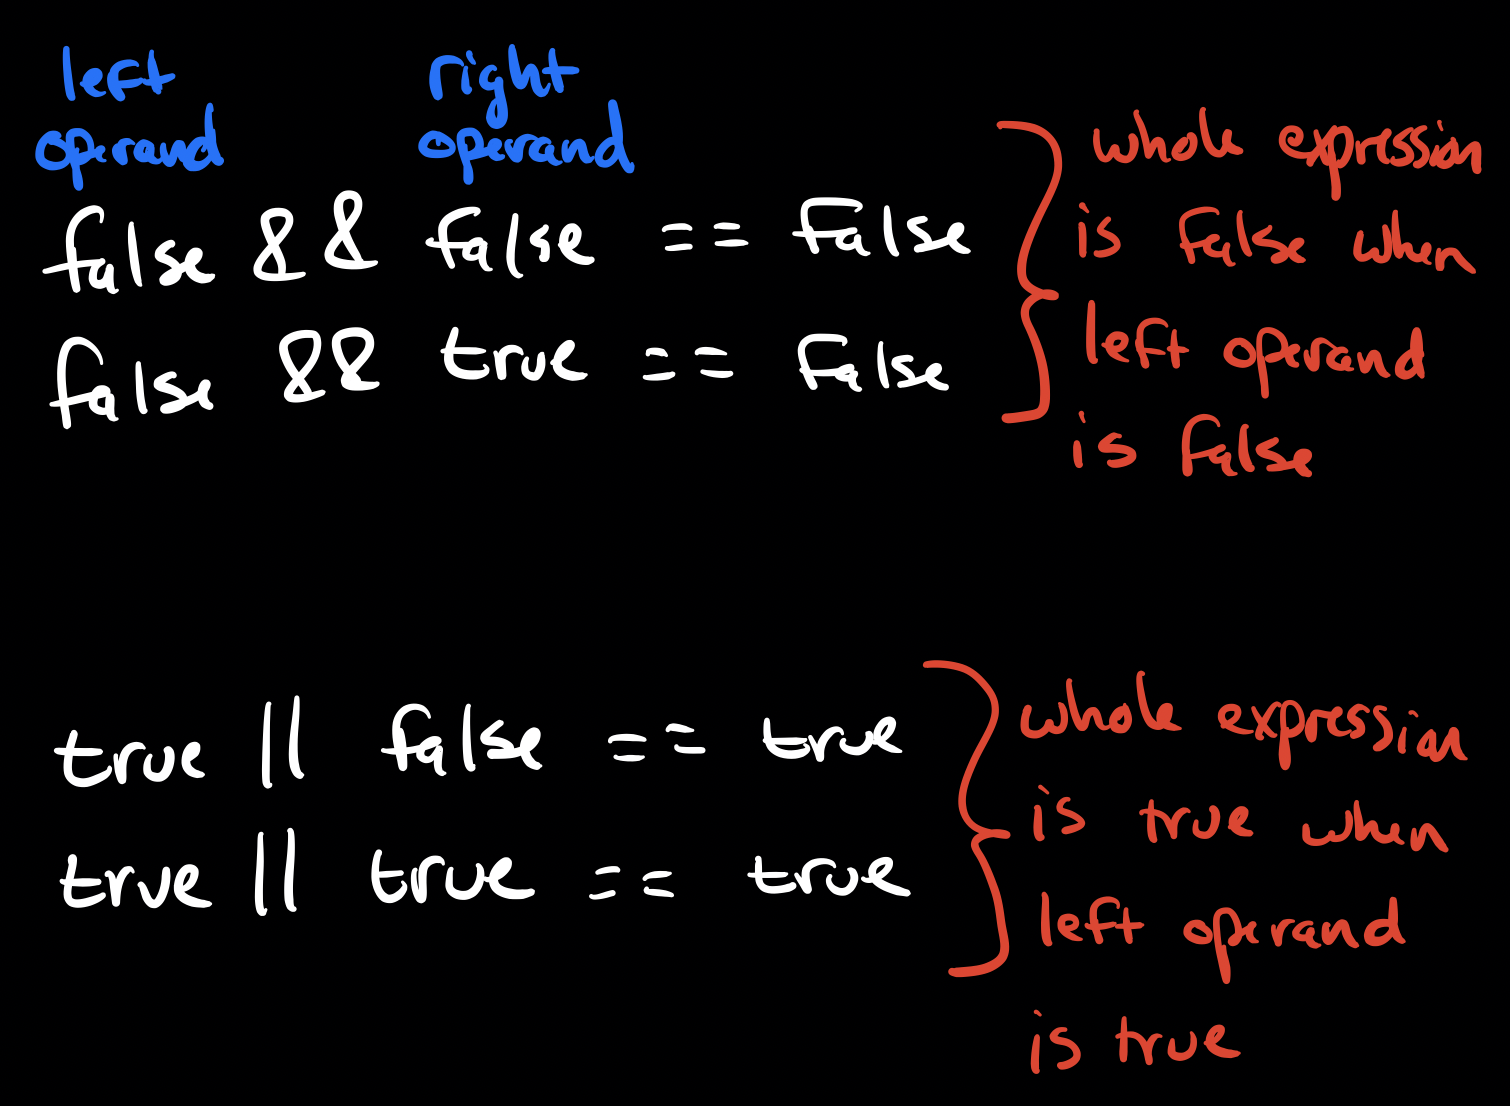 left right
operand operand
false && false == False
false && true == False
whole expression
is False when
left operand
is False
true || false == true
true || true == true
whole expression
is true when
left operand
is true